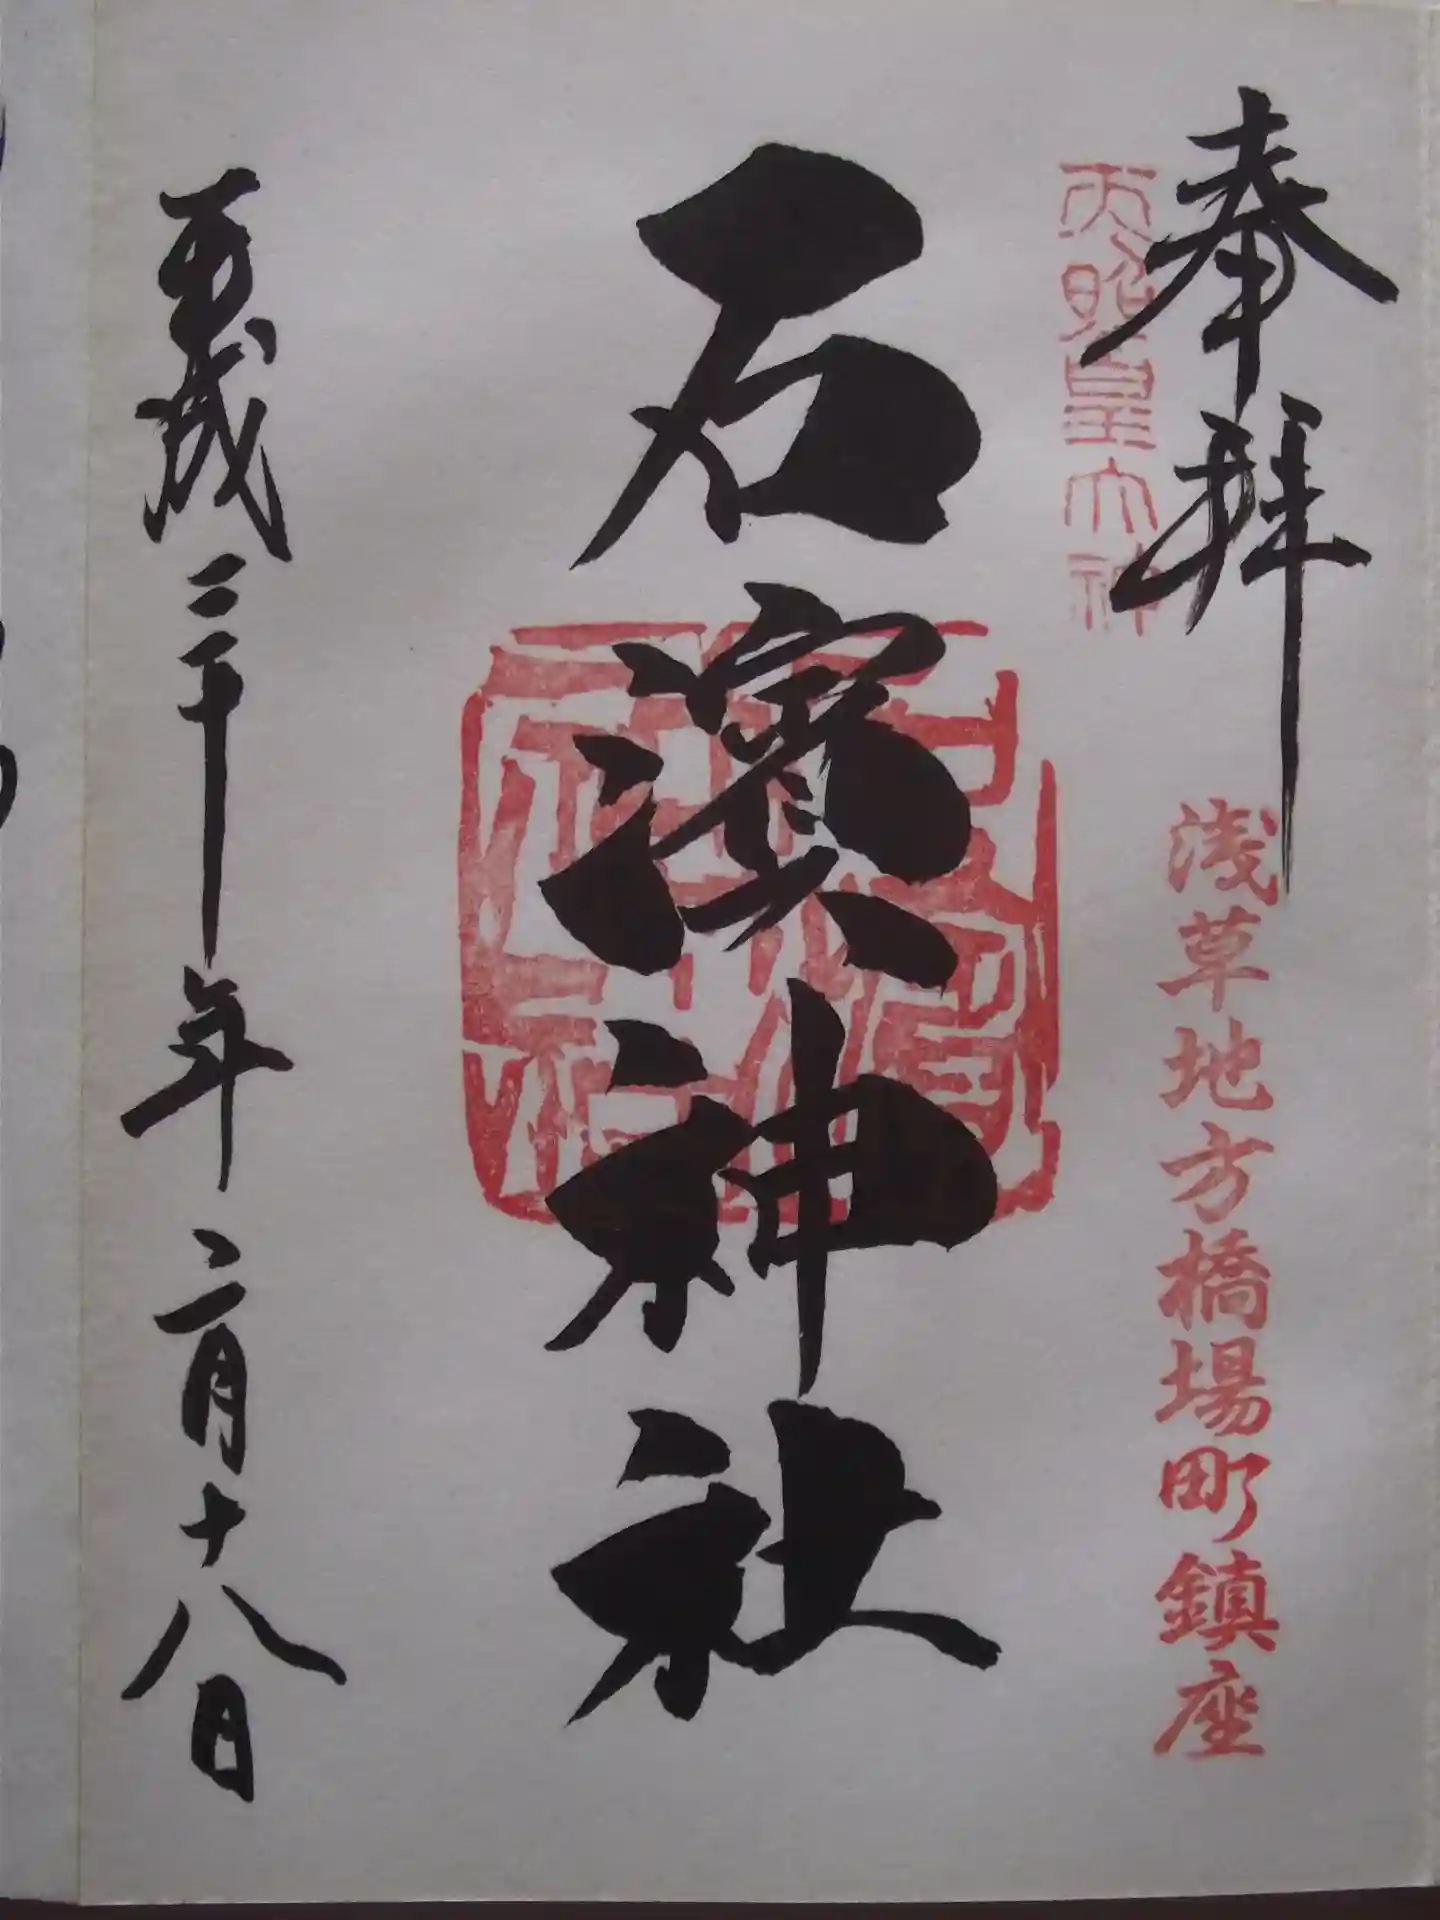 奉拝
天照皇大神
浅草地方橋場町鎮座
石濱神社
平成三十年二月十八日